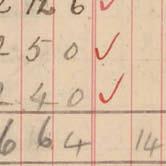 2 12 6 ✓
2 5 0 ✓
2 4 0 ✓
6 6 4 14